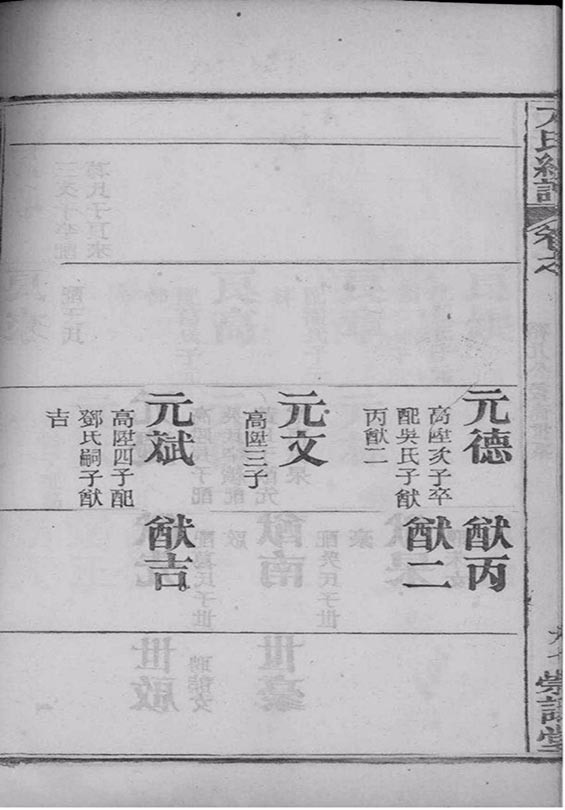 氏 譜 卷之
元德
高陞次子卒
配吳氏子猷
丙猷二
猷丙
猷二
元文
高陞三子
元斌
高陞四子配
鄧氏嗣子猷
吉
猷吉